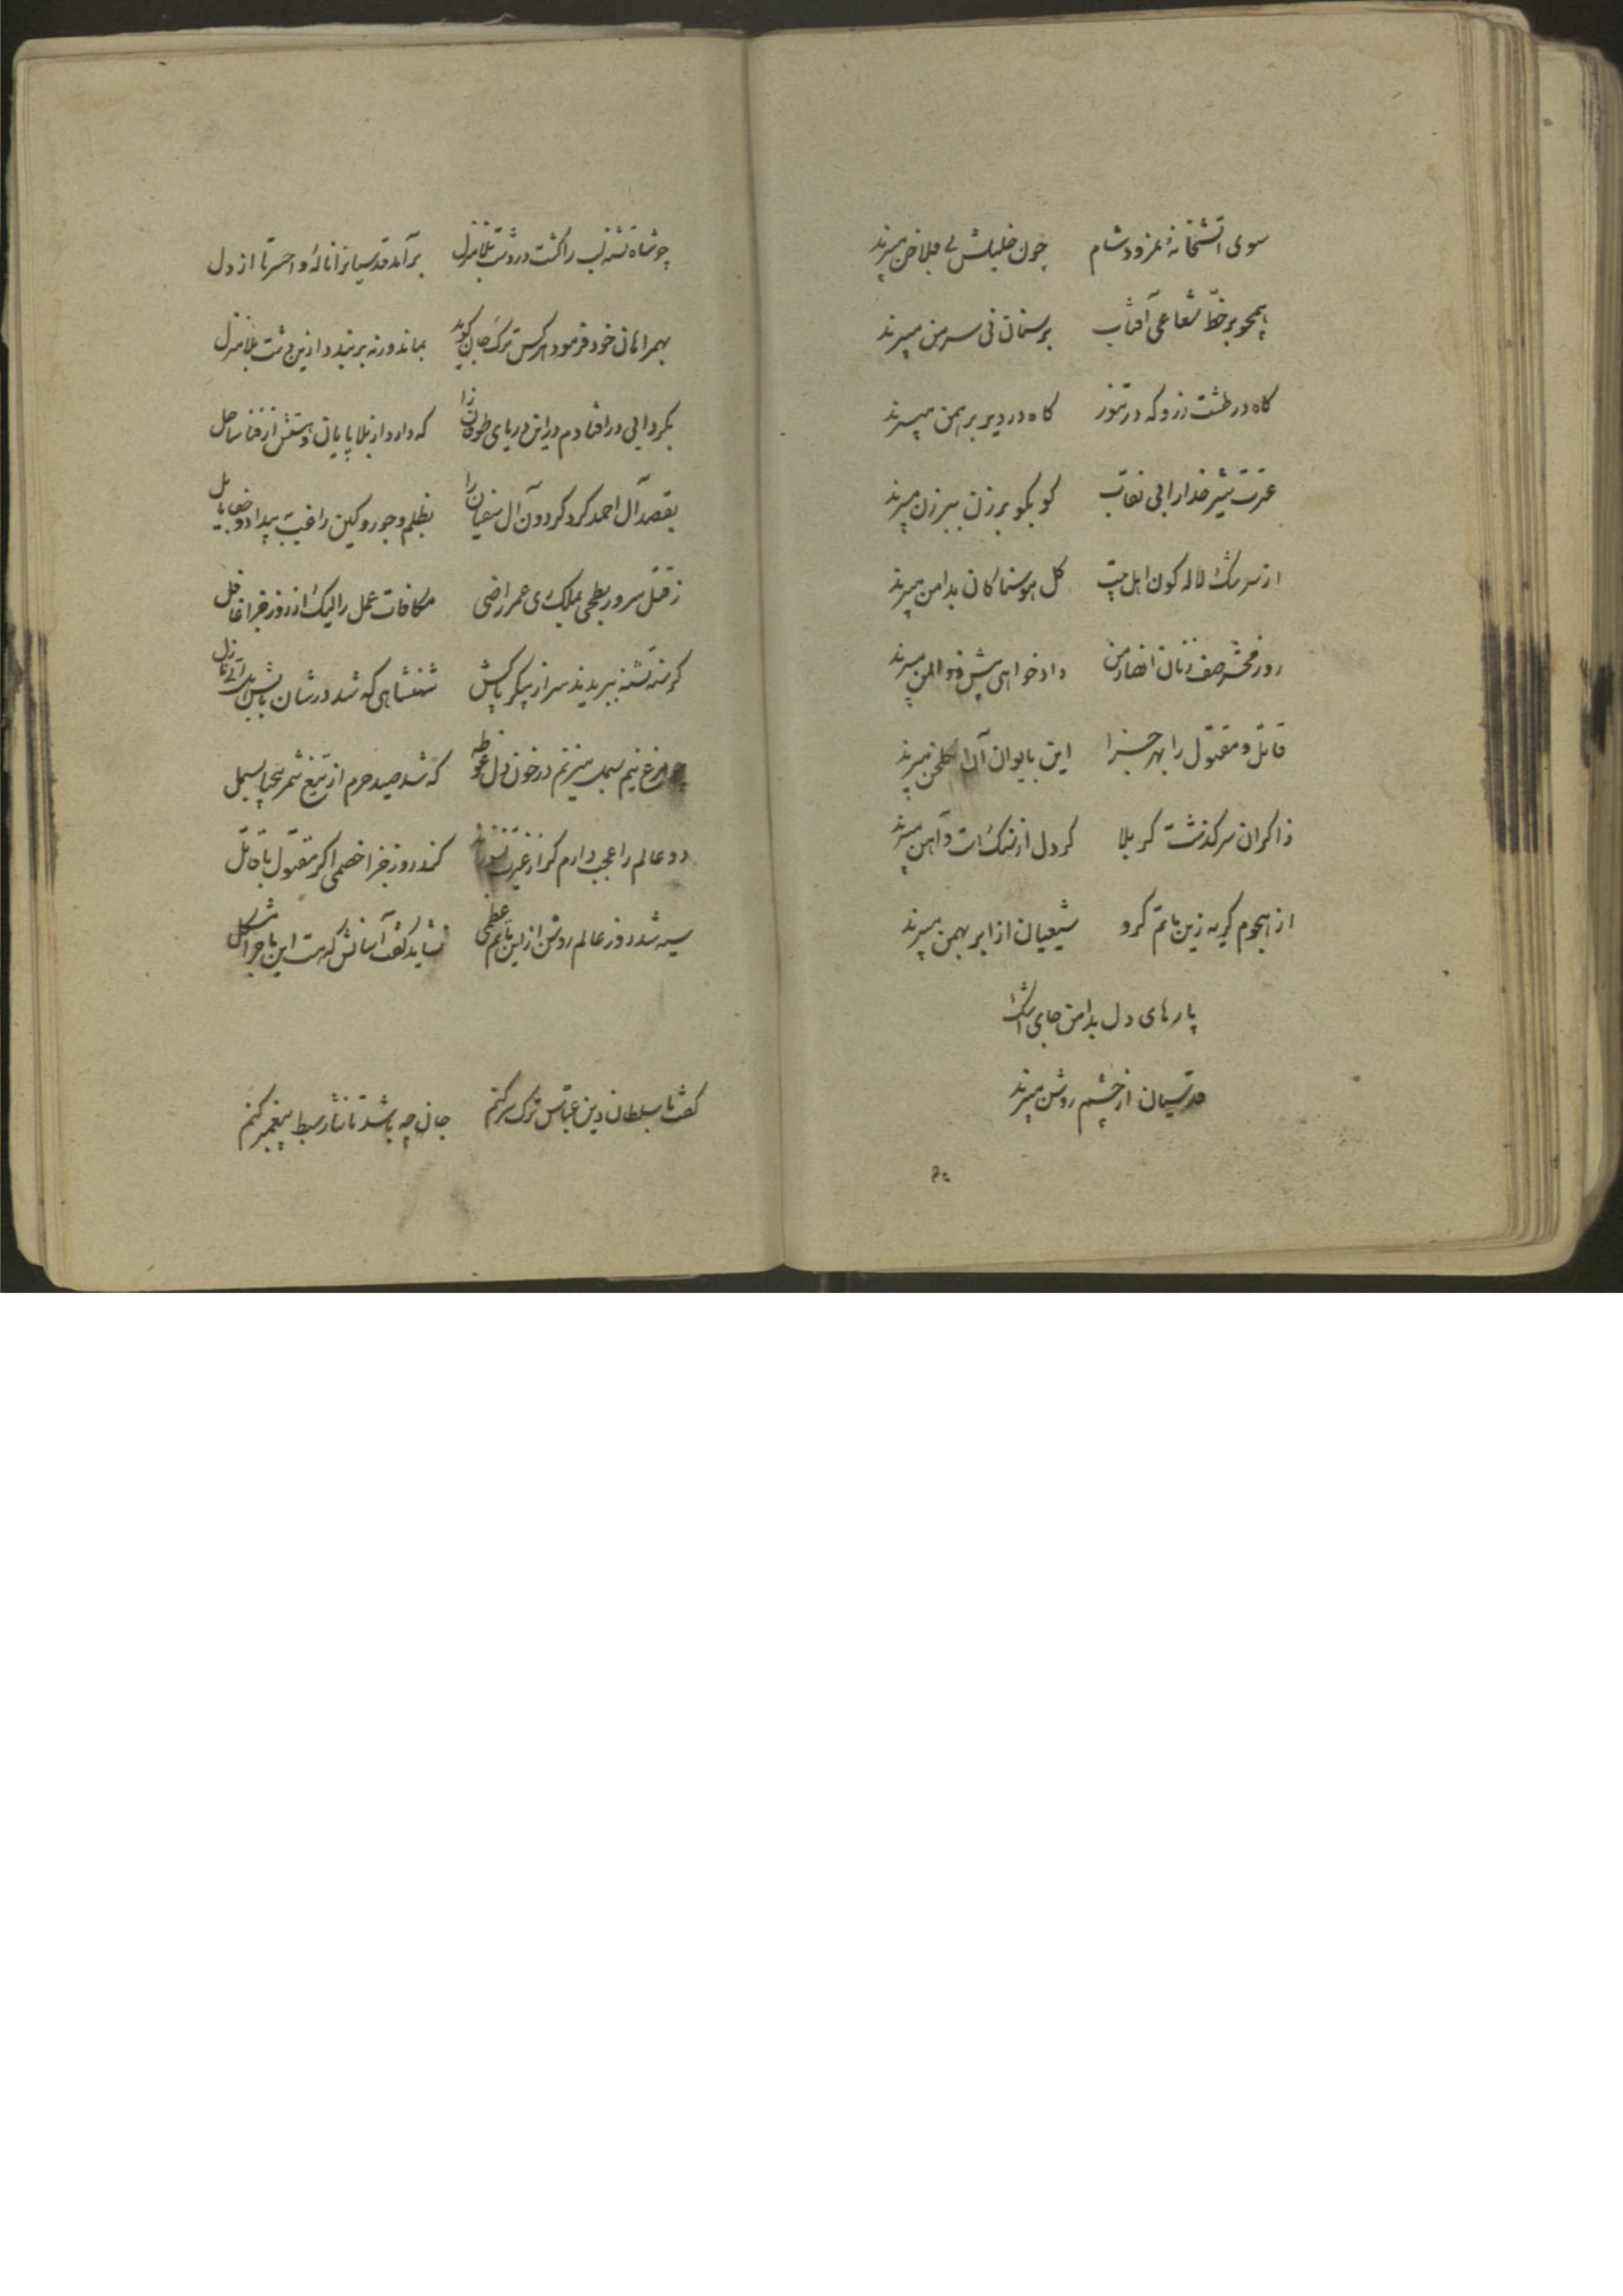 سوی اتشخانهٔ نمرود شام چون خلیلش بی فلاخن میبرند
همچو بر خطّ شعاعی آفتاب بر سنان نی سر من میبرند
کاه در طشت زر و که در تنور کاه در دیر برهمن میبرند
عترت شیر خدا را بی نقاب کو بکو برزن ببرزن میبرند
از سرشک لاله کون اهل بیت کل هوسناکان بدامن میبرند
روز محشر صف زنان انصار من داد خواهی پیش ذوالمنن میبرند
قاتل و مقتول را بهر جزا این بایوان آن بکلخن میبرند
ذاکران سرکذشت کربلا کر دل از سنک است و آهن میبرند
از هجوم کریه زین ماتم کرو شیعیان از ابر بهمن میبرند
پارهای دل بدامن جای اشک
قدسیان از چشم روشن میبرند
چو شاه تشنه لب را کشت در دشت بلا منزل بر آمد قدسیانرا نالهٔ واحسرتا از دل
بهمراهان خود فرمود هرکس ترک جان کوید بماند ورنه بر بندد ازین دشت بلا منزل
بکردابی در افتادم در این دریای طوفان زا که دارد از بلا پایان و هستش از فنا ساحل
بقصد آل احمد کرد کردون آل سفیان را بظلم و جور و کین راغب به بیداد و جفا مایل
ز قتل سرور بطحی بملک ری عمر راضی مکافات عمل را لیک از روز جزا غافل
کرسنه تشنه ببریدند سر از پیکر پاکش شهنشاهی که شد در شان بابش هل اتی نازل
چو مرغ نیم بسمل میزنم در خون دل غوطه که شد صید حرم از تیغ شمر بیحیا بسمل
دو عالم را عجب دارم کر از غیرت نسوزاند کند روز جزا خصمی اکر مقتول با قاتل
سیه شد روز عالم روشن از این ماتم عظمی نشاید کفت آسانش که هست این ماجرا مشکل
کفت با سلطان دین عباس ترک سر کنم جان چه باشد تا نثار سبط پیغمبر کنم